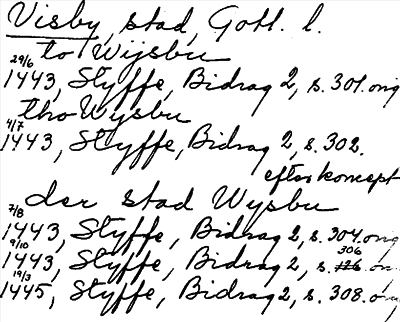 Visby, stad, Gotl. l.
to Wijsbu
29/6
1443, Styffe, Bidrag 2, s. 301. orig
tho Wysbu
4/7
1443, Styffe, Bidrag 2, s. 302.
efter koncept
der stad Wysbu
7/8
1443, Styffe, Bidrag 2, s. 304. orig
9/10 306
1443, Styffe, Bidrag 2, s. or
19/3
1445, Styffe, Bidrag 2, s. 308. orig